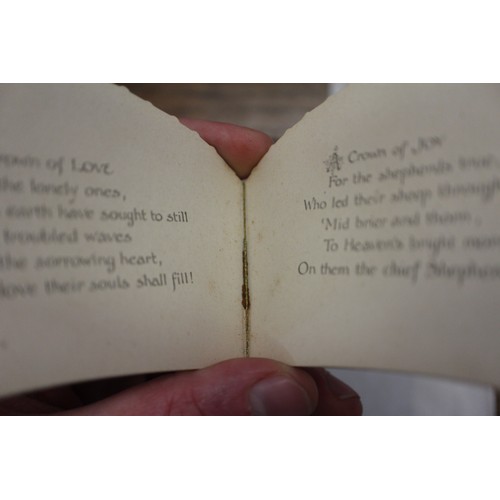 rown of Love
the lonely ones,
earth have sought to still
troubled waves
the sorrowing heart,
love their souls shall fill!
A Crown of Joy
For the shepherds true
Who led their sheep through
'Mid brier and thorn,
To Heaven's bright
On them the chief Shepher